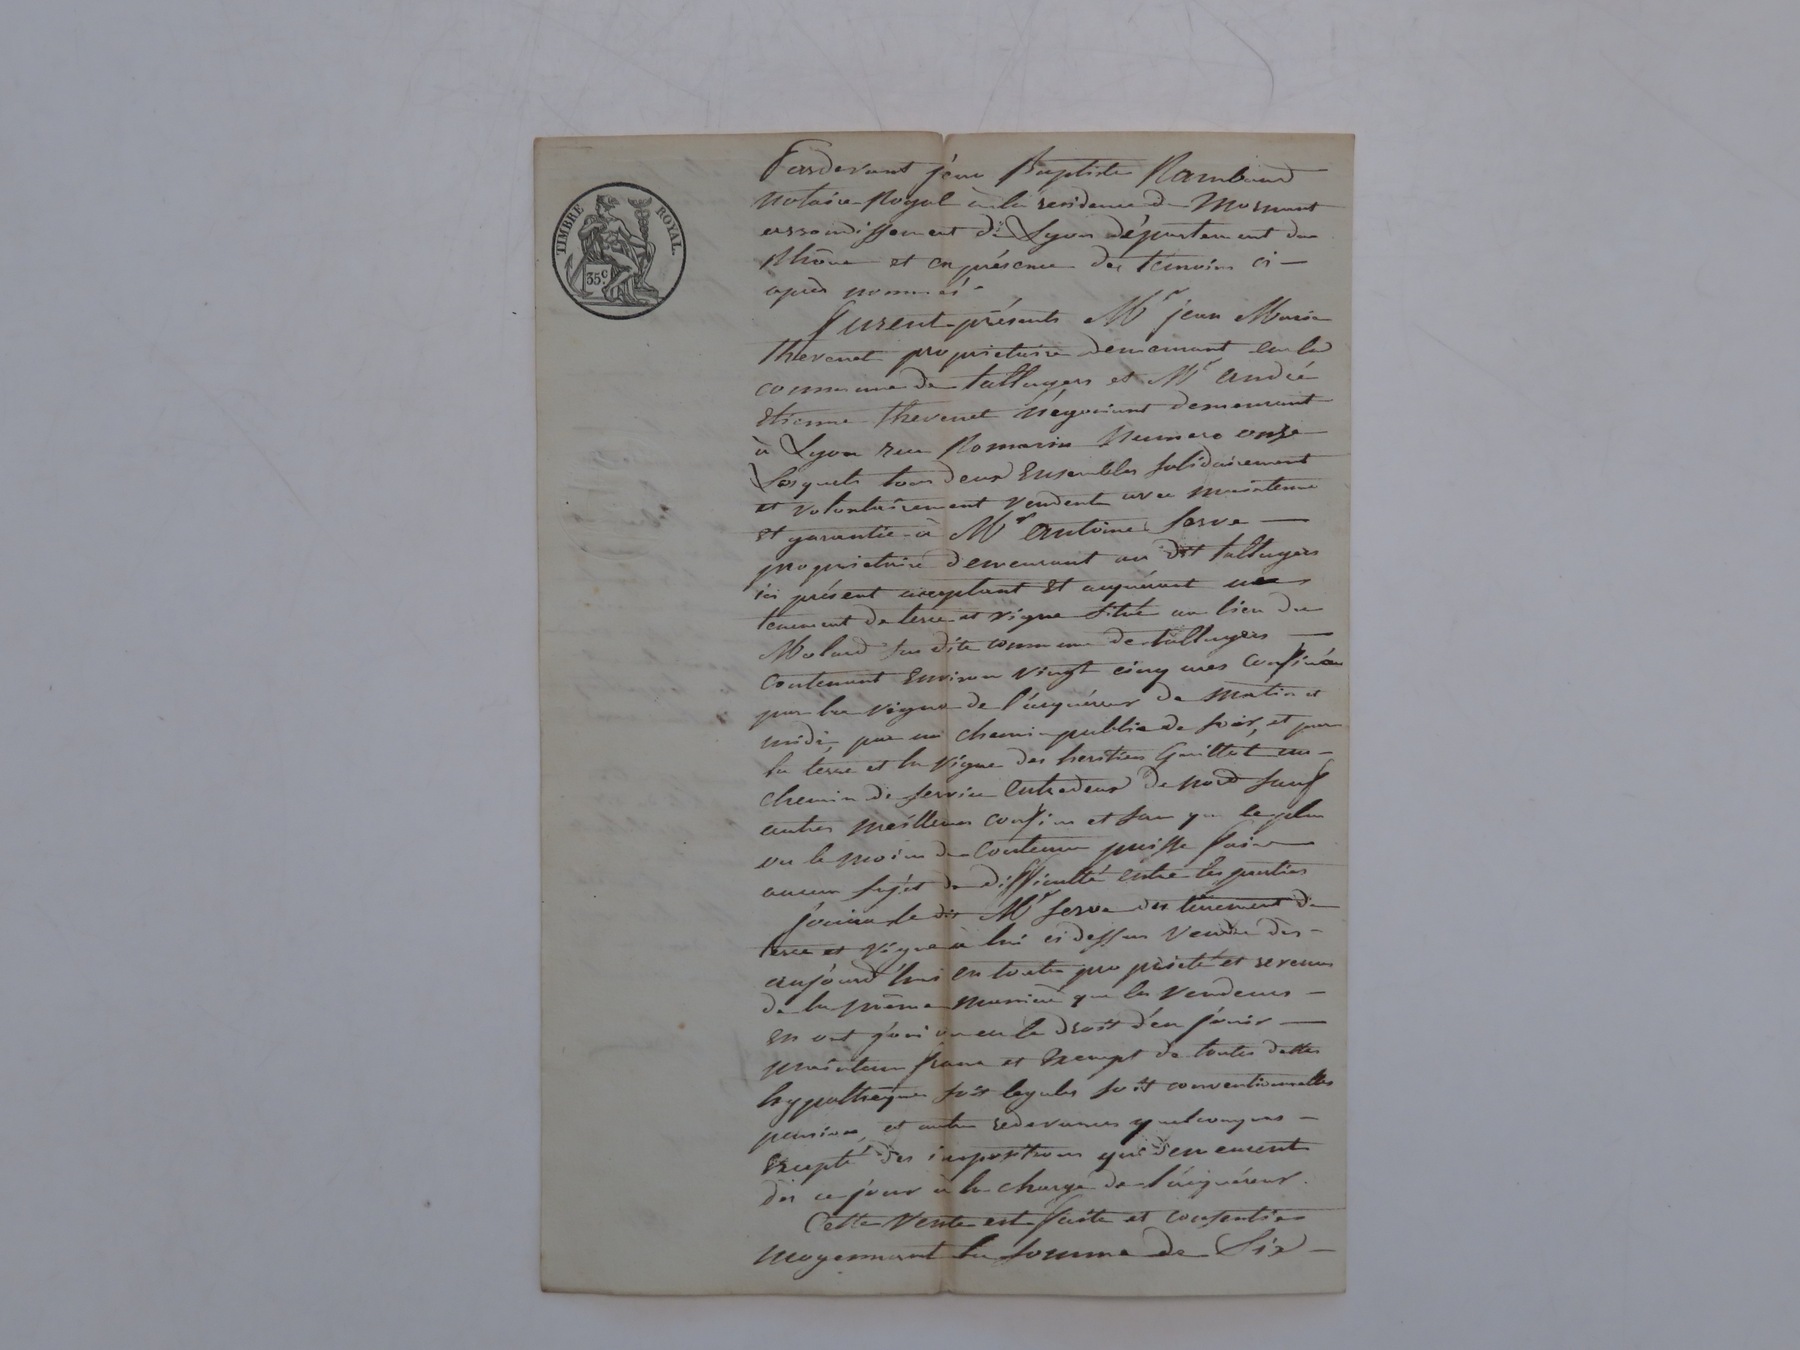 TIMBRE ROYAL
35c.
Pardevant jean Baptiste Rambaud
notaire Royal à la residence de Mornant
arrondissement de Lyon département du
Rhône et en présence des temoins ci-
après nommés
Furent présents Mr jean Marie
thevenet propriétaire demeurant en la
commune de talluyers et Mr andré
Etienne thevenet Négociant demeurant
à Lyon rue Romarin Numero onze
Lesquels tous deux Ensembles solidairement
et volontairement vendent avec maintenue
et garantie à Mr antoine Serve
propriétaire demeurant au dit talluyers
ici présent acceptant Et acquérant un
tenement de terre et vigne situé au lieu du
Molard sus dite commune de talluyers
Contenant Environ vingt cinq ares Confinée
par la vigne de l'acquéreur de matin et
midi, par un chemin public de soir, et par
la terre et la vigne des heritiers Guillot un
chemin de service Entredeux de nord sauf
autres meilleurs confins et sans que le plus
ou le moins de Contenue puisse faire
aucun sujet de difficulté Entre les parties
jouira le dit Mr Serve des tenement de
terre et vigne à lui ci dessus vendu des
aujourd'hui en toute propriété et revenus
de la même manière que les vendeurs
En ont joui ou eu le droit d'en jouir
franc et Exempt de toutes dettes
hypothèques soit legales soit conventionnelles
pensions, et autres redevances quelconques
Excepté des impositions qui demeurent
des ce jour à la charge de l'acquéreur.
Cette Vente est faite et consentie
moyennant la somme de Six